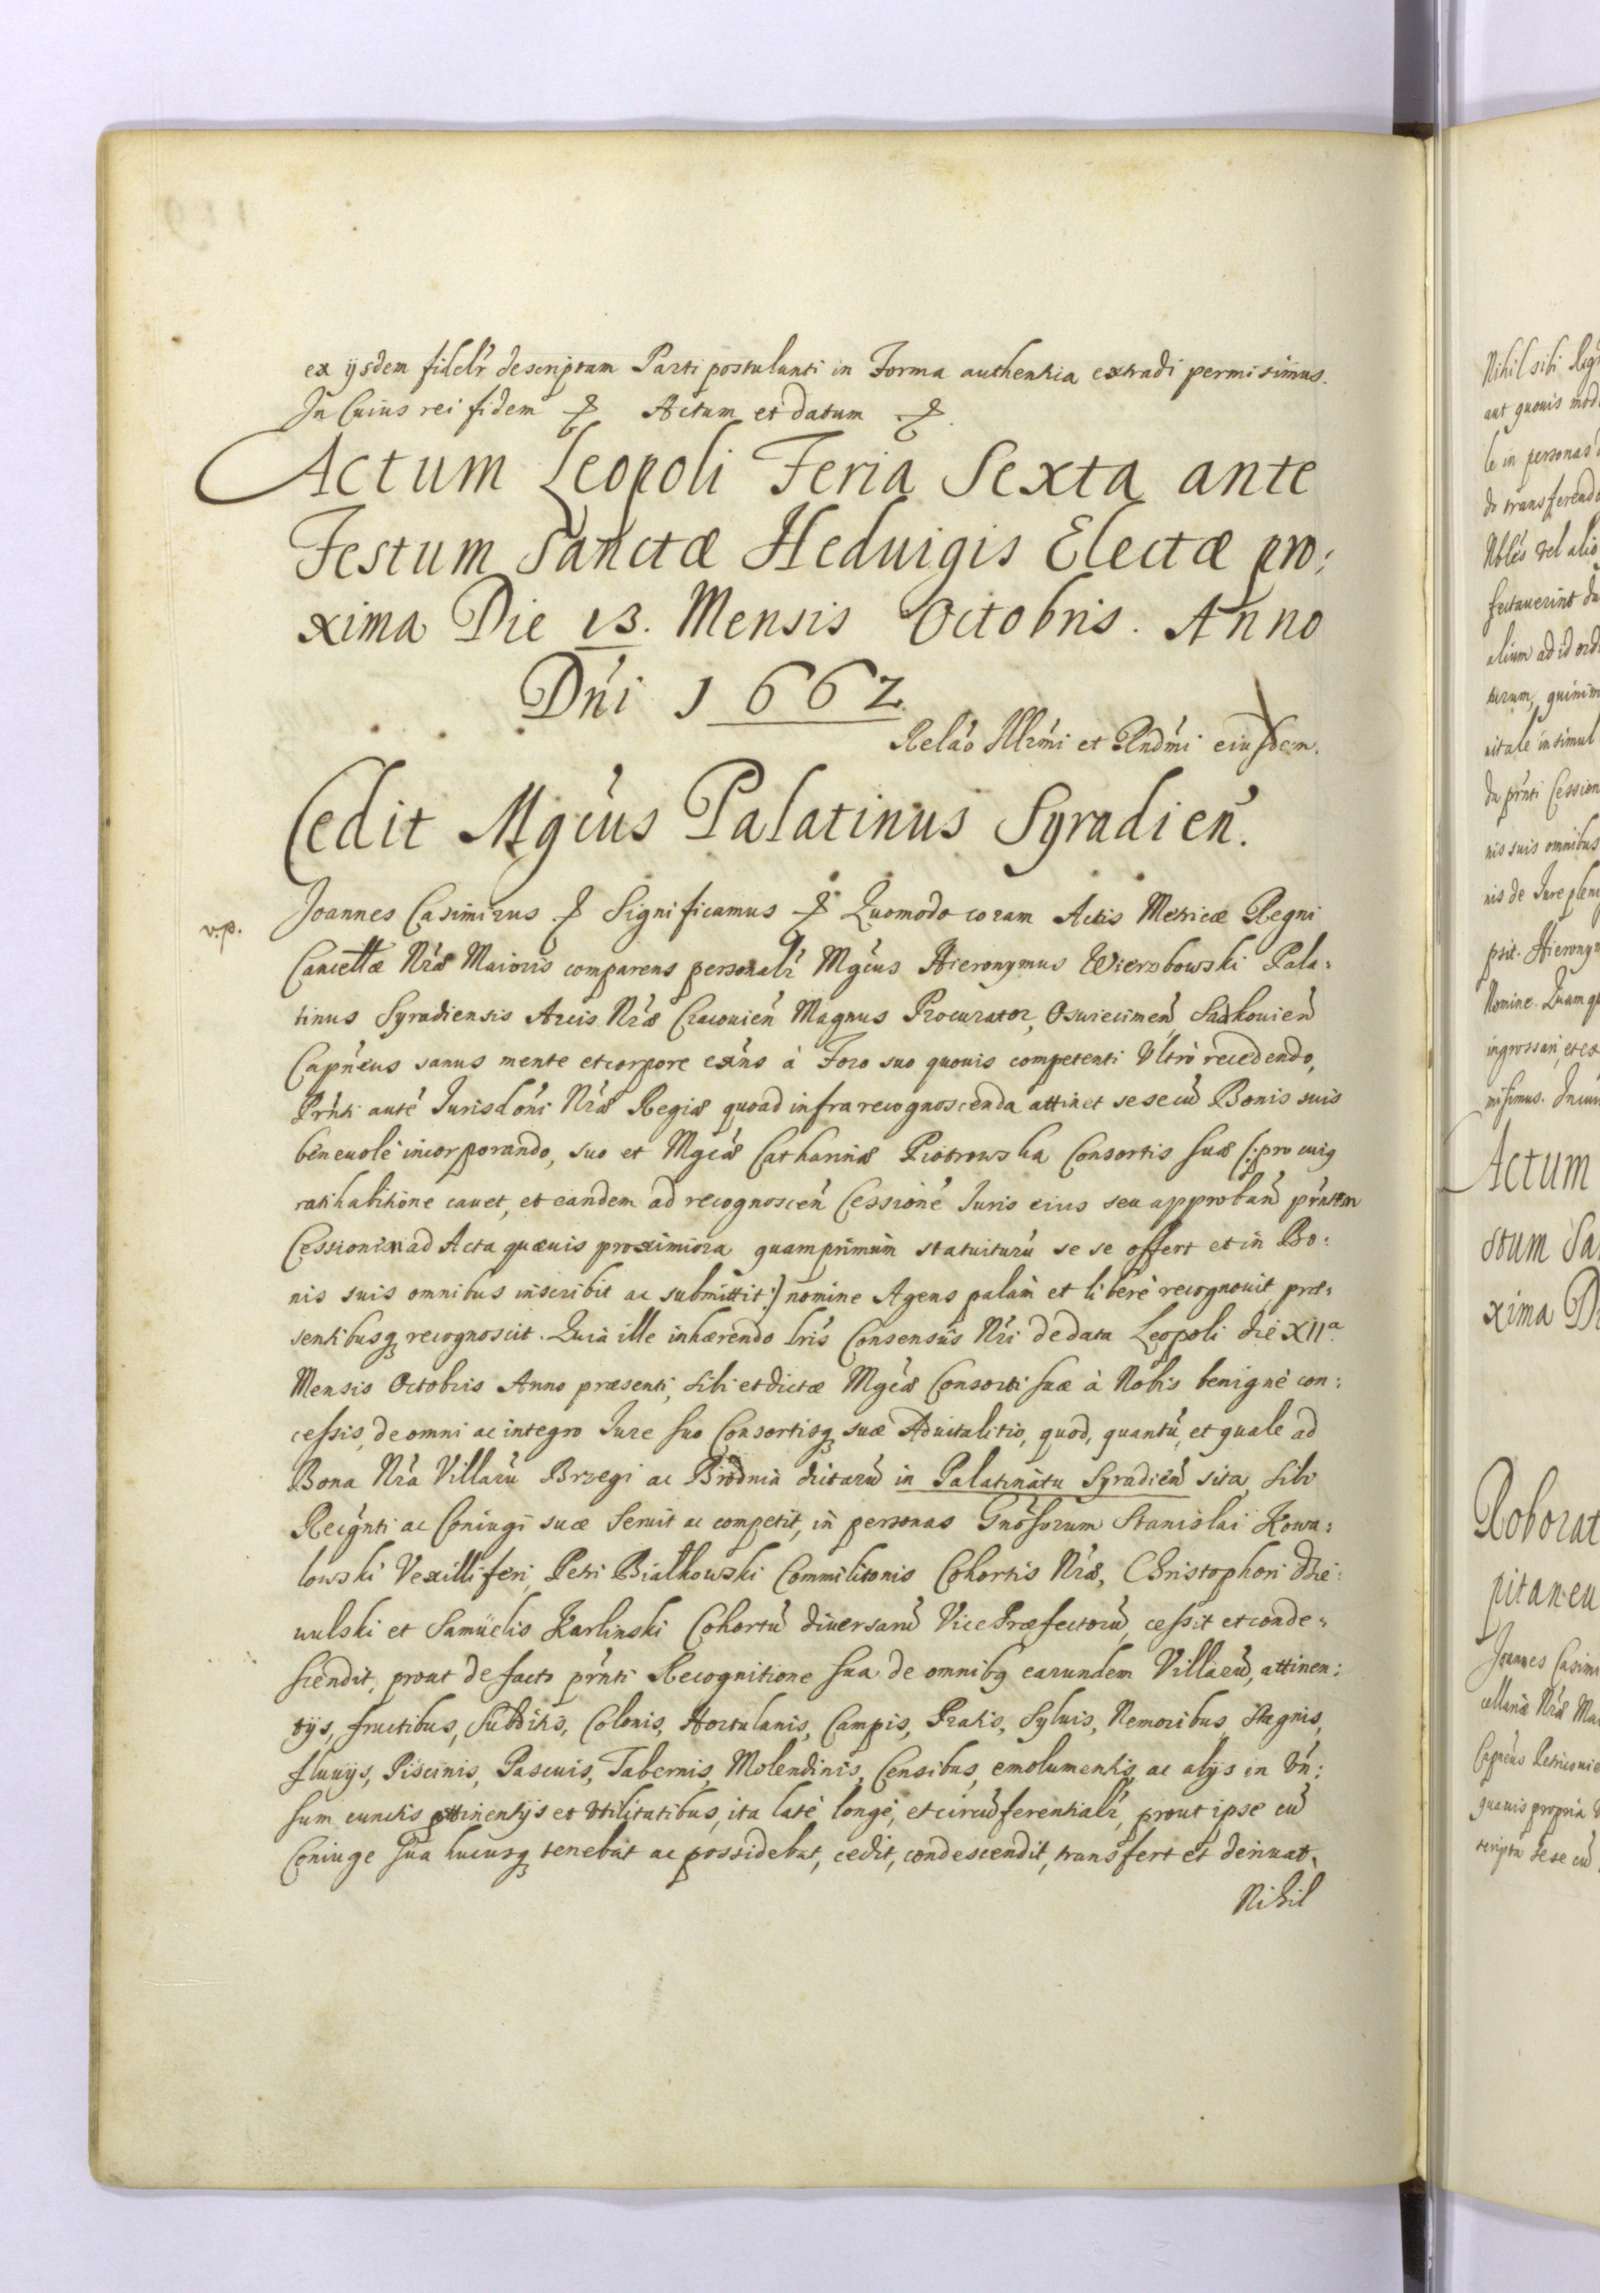 ex ijsdem fidelr descriptam Parti postulanti in Forma authentica extradi permisimus.
In Cuius rei fidem Actum et datum
Actum Leopoli Feria Sexta ante
Festum Sanctæ Heduigis Electæ pro:
xima Die 13. Mensis Octobris. Anno
Dńi 1662
Relao Illrmi et Rndmi eiusdem.
Cedit Mgcus Palatinus Syradien.
v.p.
Joannes Casimirus Significamus Quomodo coram Actis Metricæ Regni
Cancellæ Nræ Maioris comparens personalr Mgcus Hieronymus Wierzbowski Pala:
tinus Syradiensis Arcis Nræ Cracouien Magnus Procurator, Osuiecimen, Sadkouien
Capneus sanus mente et corpore exns à Foro suo quouis competenti Vltrò recedendo,
Prnti autē Jurisdoni Nræ Regiæ quoad infra recognoscenda attinet se se cū Bonis suis
beneuolè incorporando, suo et Mgcæ Catharinæ Piotrowska Consortis suæ (:pro cuiq
ratihabitione cauet, et eandem ad recognoscen Cessionē Juris eius seu approban prntem
Cessionem ad Acta quæuis proximiora quamprimum statuiturū se se offert et in Bo:
nis suis omnibus inscribit ac submittit:) nomine Agens palàm et liberè recognouit præ:
sentibusq recognoscit. Quia ille inhærendo lris Consensus Nri de data Leopoli die XIIa.
Mensis Octobris Anno præsenti, sibi et dictæ Mgcæ Consorti suæ à Nobis benignè con:
cessis, de omni ac integro Jure suo Consortisq suæ Aduitalitio, quod, quantū, et quale ad
Bona Nra Villarū Brzegi ac Brodnia dictarū in Palatinatu Syradien sita, sibi
Recgnti ac Coniugi suæ seruit ac competit, in personas Gnosorum Stanislai Kowa:
lowski Vexilliferi, Petri Białkowski Commilitonis Cohortis Nræ, Christophori Dzie:
wulski et Samuelis Karlinski Cohortū diuersarū Vice Præfectorū, cessit et conde:
scendit, prout de facto prnti Recognitione sua de omnibq earundem Villarū, attinen:
tijs, fructibus, Subditis, Colonis, Hortulanis, Campis, Pratis, Syluis, Nemoribus, Stagnis,
fluuijs, Piscinis, Pascuis, Tabernis, Molendinis, Censibus, emolumentis, ac alijs in vn:
sum cunctis attinentijs et vtilitatibus, ita latè longè, et circūferentialr, prout ipse cū
Coniuge sua hucusq tenebat ac possidebat, cedit, condescendit, transfert et deriuat.
Nihil
Nihil sibi
aut quouis
le in personas
do transferendo
Nobles vel alio
fectauerint
alium ad id
turum, quinim
uitale insimul
da prnti Cession
nis suis omnibus
nis de Jure
psit. Hieronym
Nomine. Quam
ingrossari, et
misimus. In cuius
Actum
stum Sa
xima D
Roborat
pitaneu
Joannes Casimi
cellariæ Nræ Ma
Capneus
quauis propria
scripta sese cū